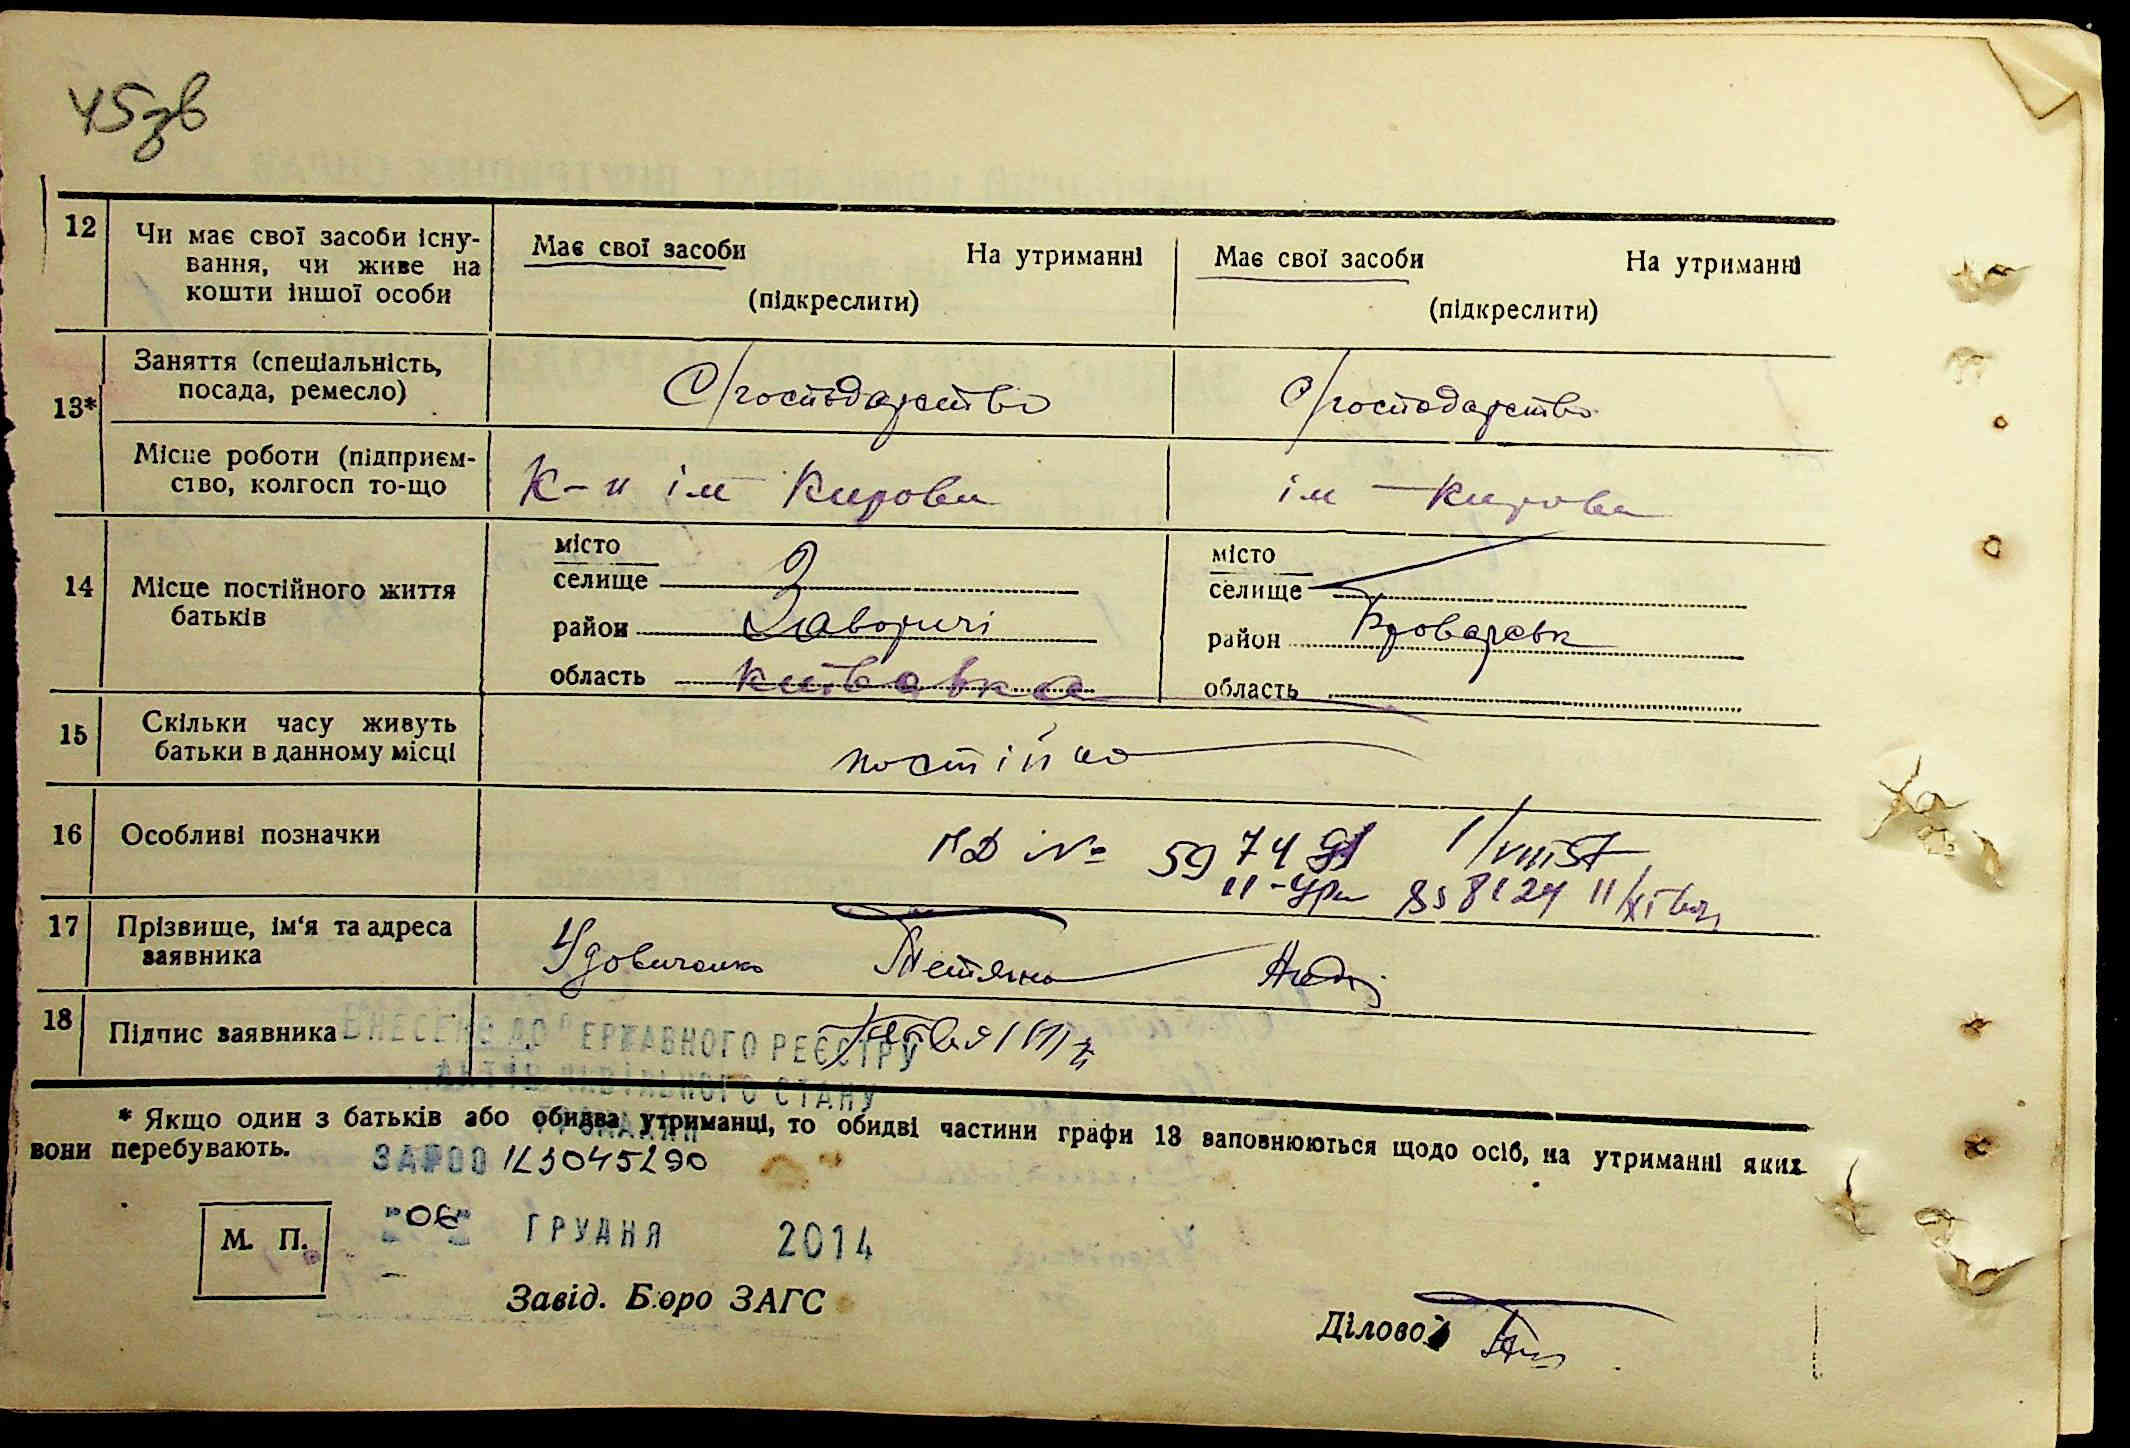 45зв
12 Чи має свої засоби існу-
вання, чи живе на
кошти іншої особи
Має свої засоби На утриманні
(підкреслити)
Має свої засоби На утриманні
(підкреслити)
13* Заняття (спеціальність,
посада, ремесло)
С/господарство
С/господарство
Місце роботи (підприєм-
ство, колгосп то-що
К-п ім Кирова
ім Кирова
14 Місце постійного життя
батьків
місто
селище
район Заворичі
область Київська
місто
селище
район Броварськ
область
15 Скільки часу живуть
батьки в данному місці
постійно
16 Особливі позначки
№ 5974 1/VIII 57
17 Прізвище, ім'я та адреса
заявника
Удовиченко Тетяна Андр
18 Підпис заявника
ВНЕСЕНО ДО ДЕРЖАВНОГО РЕЄСТРУ
АКТІВ ЦИВІЛЬНОГО СТАНУ
ГРОМАДЯН
* Якщо один з батьків або обидва утриманці, то обидві частини графи 13 заповнюються щодо осіб, на утриманні яких
вони перебувають.
ЗА №00123045290
М. П.
"06" ГРУДНЯ 2014
Завід. Бюро ЗАГС
Діловод